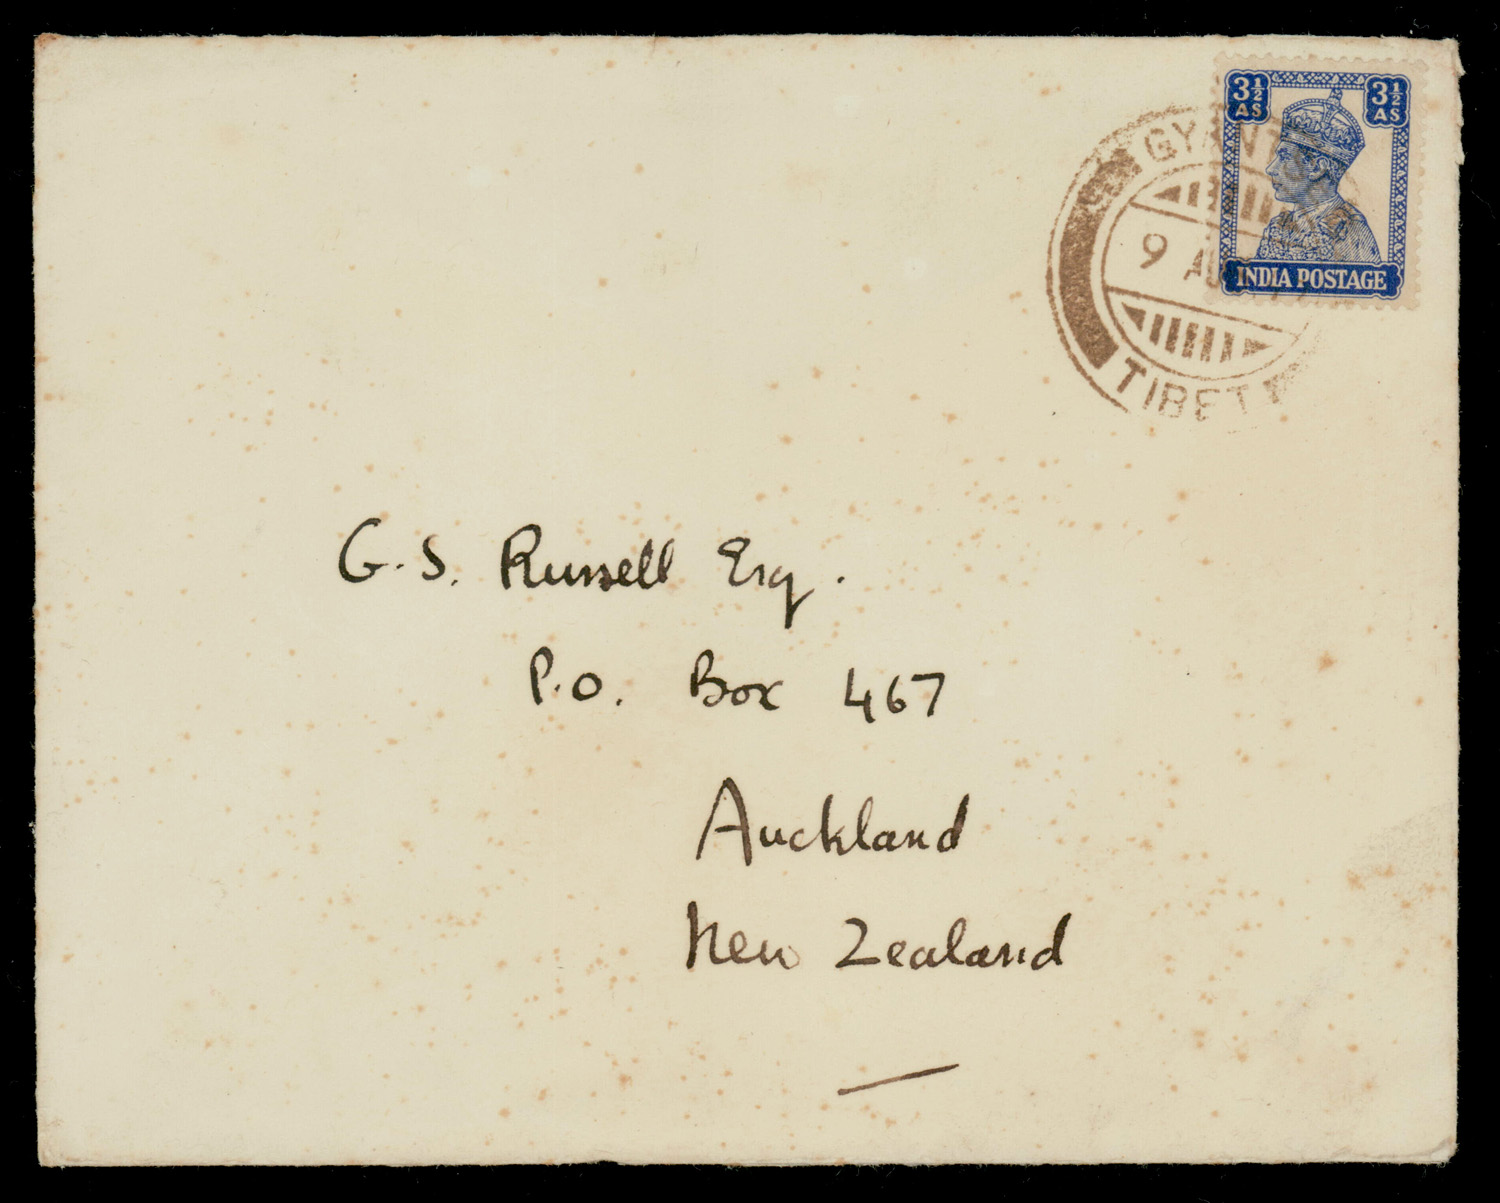 3½ AS 3½ AS
INDIA POSTAGE
GYANT
9 AU
TIBET
G. S. Russell Esq.
P.O. Box 467
Auckland
New Zealand